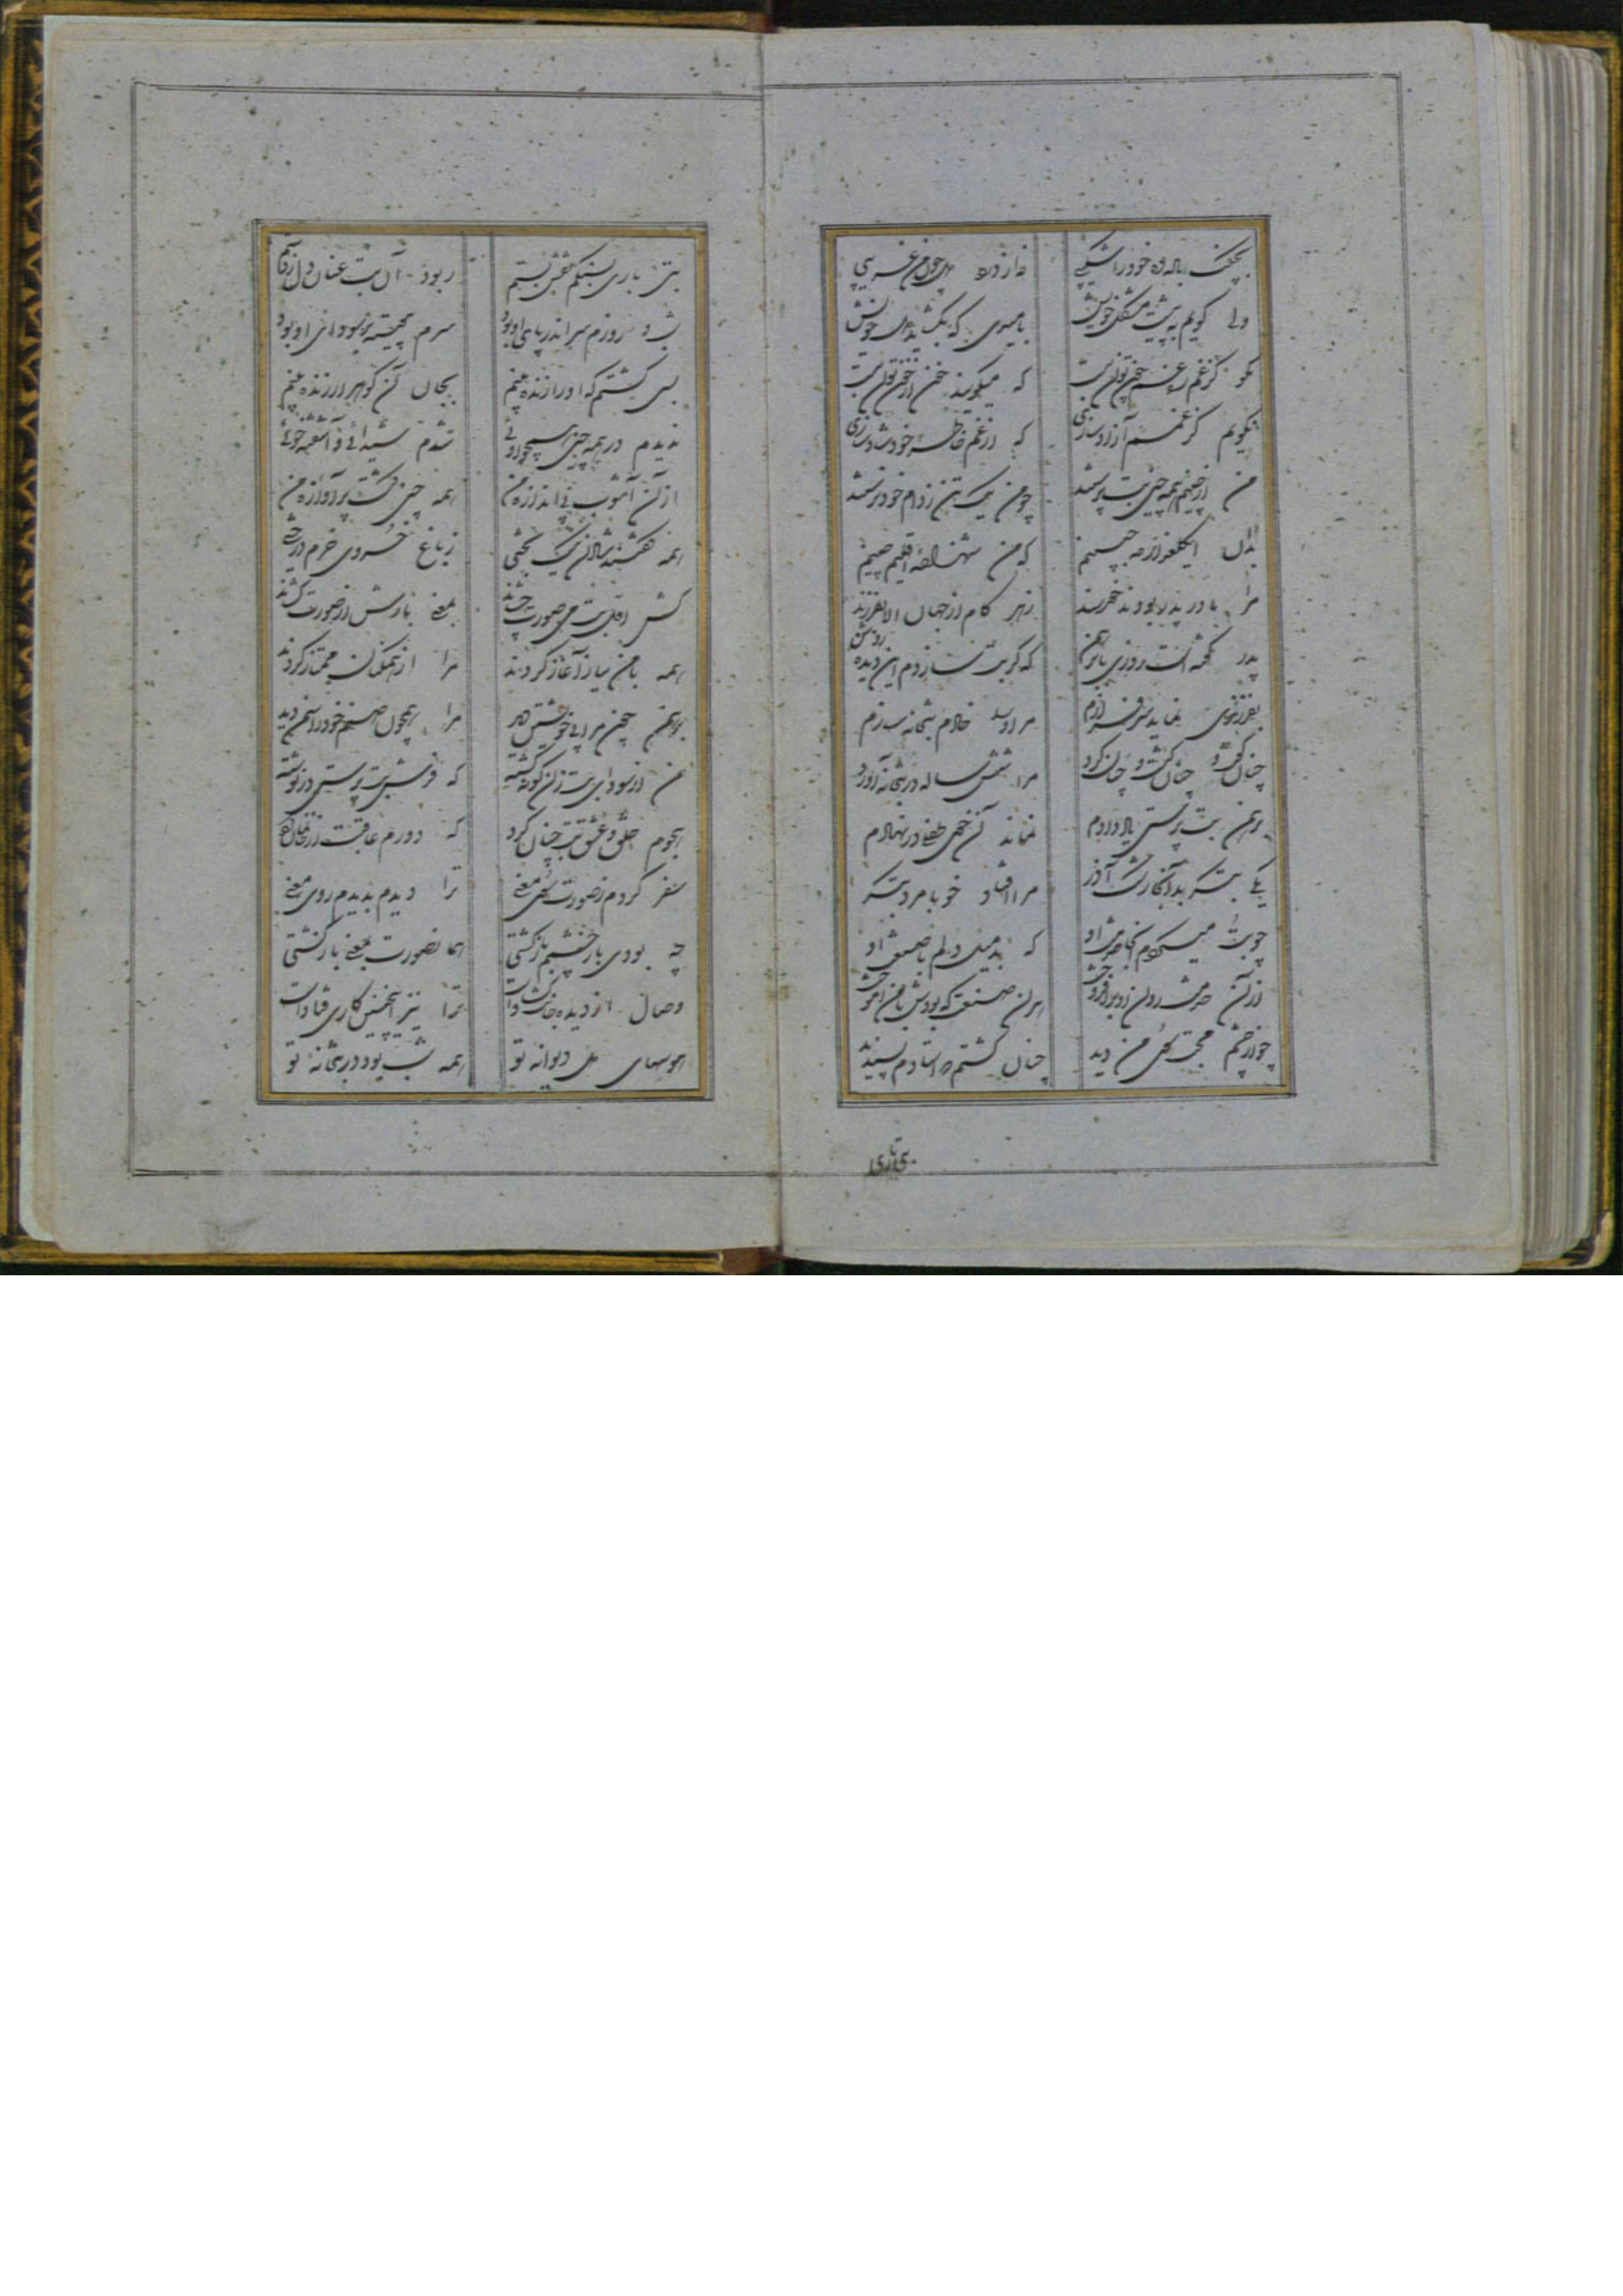 ولی گویم به پیشت مشکل خویش بامیدی که بگشاید دل خویش
که میگویند خون از خون توان شست
نگویم کز غمم آزاد سازی که از غم خاطر خود شاد سازی
من از چینم همه چین بت پرستند چو من یک تن ز دام خود نرستند
که من شهزاده اقلیم چینم
مرا مادر پدر بودند خرسند زهر کام از جهان الا بفرزند
پدر گفت روزی با برهمن که گر بت سازدم این دیده روشن
بفرزندی نماید سرفرازم مر او را خادم بتخانه سازم
چنان گفت و چنان گشت و چنان کرد مرا شش ساله در بتخانه آورد
برهمن بت پرستی یاد دادم نماند آن خوی طفلی در نهادم
یکی بتگر بد آنجا رشک آذر مرا افتاد خو با مرد بتگر
چو بت میکردم آنجا خدمت او که بد میل دلم با صنعت او
از آن خدمت روان او برافروخت هر آن صنعت که بودش با من آموخت
چو از چشم محبت سوی من دید چنان گشتم که استادم پسندید
بتی باری
بتی باری بسنگم نقش بستم ربود آن بت عنان دل ز دستم
شب و روزم سر اندر پای او بود سرم پیوسته پر سودای او بود
بسی گشتم که او را زنده بینم بجان آن گوهر ارزنده بینم
ندیدم در همه چین همچو اوئی شدم شیدائی و آشفته خوئی
از آن آشوب بی اندازه من همه چین گشت پر آوازه من
همه گفتند شاد آن نیک بختی ز باغ خسروی خرم درختی
کش اول بت پی صورت
همه با من نیاز آغاز کردند مرا از همگنان ممتاز کردند
برهمن چون مرا بی خویشتن دید مرا همچون صنم خود را شمن دید
من از سودای بت زان گونه گشته که فرش بت پرستی در نوشته
هجوم خلق و عشق بت چنان کرد که دورم عاقبت از خانمان کرد
سفر کردم ز صورت سوی معنی ترا دیدم بدیدم روی معنی
چه بودی باز چشمم باز گشتی
وصال از دیده ترا نیز اینچنین کاری فتادست
هوسهای دل دیوانه تو همه شب بود در بتخانه تو